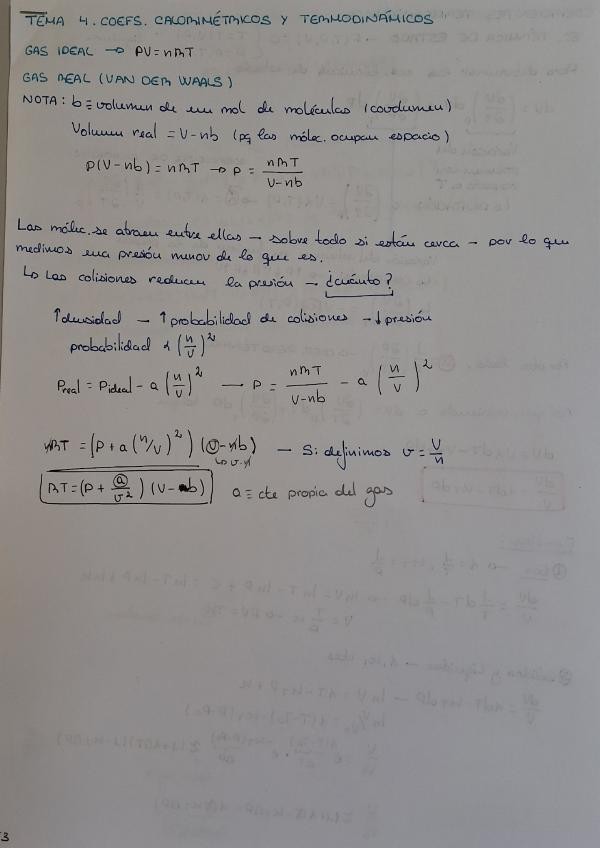 TEMA 4. COEFS. CALORIMÉTRICOS Y TERMODINÁMICOS
GAS IDEAL → PV=nRT
GAS REAL (VAN DER WAALS)
NOTA: b≡volumen de un mol de moléculas (covolumen)
Volumen real = V-nb (pq las moléc. ocupan espacio)
P(V-nb)=nRT → P = nRT/(V-nb)
Las moléc. se atraen entre ellas – sobre todo si están cerca – por lo que
medimos una presión menor de lo que es.
↳ Las colisiones reducen la presión – ¿cuánto?
↑densidad – ↑probabilidad de colisiones – ↓presión
probabilidad α (n/V)²
Preal = Pideal - a (n/V)² — P = nRT/(V-nb) - a (n/V)²
nRT = (P + a(n/V)²) (V-nb) – Si definimos v = V/n
↳ v·n
RT = (P + a/v²) (V-b) a ≡ cte propia del gas
3